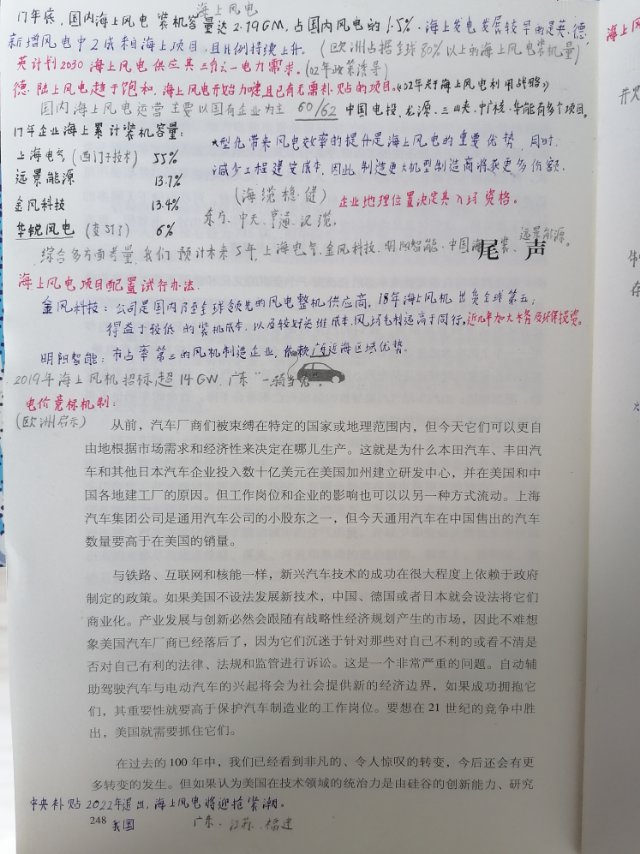 海上风电
17年底，国内海上风电装机容量达2.79GW，占国内风电的1.5%。海上发电发展较早的是英、德，
新增风电中2成来自海上项目，且比例持续上升。（欧洲占据全球80%以上的海上风电装机量）
英计划2030海上风电供应其三分之一电力需求。(02年政策诱导)
德：陆上风电趋于饱和，海上风电开始力增且已有无需补贴的项目。(02年关于海上风电利用战略)
国内海上风电运营主要以国有企业为主 60/62 中国电投、龙源、三峡、中广核、华能有多个项目。
17年企业海上累计装机容量：
上海电气（西门子技术） 55%
远景能源 13.7%
金风科技 13.4%
华锐风电 6%
大型化带来风电效率的提升是海上风电的重要优势，同时
减少工程建安成本，因此制造更大机型制造商将获更多份额。
（海缆稳·健） 企业地理位置决定其入场资格。
东方、中天、亨通、汉缆。
远景能源。
综合多方面考量，我们预计未来5年，上海电气、金风科技、明阳智能、中国海装、
尾声
海上风电项目配置试行办法
金风科技：公司是国内乃至全球领先的风电整机供应商，18年海上风机出货全球第五；
得益于较低的装机成本，以及较好运维成本，风场毛利远高于同行。近几年加大水务及环保投资。
明阳智能：市占率第三的风机制造企业，广东近远海区域优势。
2019年海上风机招标超14GW，广东“一骑当先”。
电价竞标机制：
（欧洲启示）
从前，汽车厂商们被束缚在特定的国家或地理范围内，但今天它们可以更自
由地根据市场需求和经济性来决定在哪儿生产。这就是为什么本田汽车、丰田汽
车和其他日本汽车企业投入数十亿美元在美国加州建立研发中心，并在美国和中
国各地建工厂的原因。但工作岗位和企业的影响也可以以另一种方式流动。上海
汽车集团公司是通用汽车公司的小股东之一，但今天通用汽车在中国售出的汽车
数量要高于在美国的销量。
与铁路、互联网和核能一样，新兴汽车技术的成功在很大程度上依赖于政府
制定的政策。如果美国不设法发展新技术，中国、德国或者日本就会设法将它们
商业化。产业发展与创新必然会跟随有战略性经济规划产生的市场，因此不难想
象美国汽车厂商已经落后了，因为它们沉迷于针对那些对自己不利的或看不清是
否对自己有利的法律、法规和监管进行诉讼。这是一个非常严重的问题。自动辅
助驾驶汽车与电动汽车的兴起将会为社会提供新的经济边界，如果成功拥抱它
们，其重要性就要高于保护汽车制造业的工作岗位。要想在 21 世纪的竞争中胜
出，美国就需要抓住它们。
在过去的 100 年中，我们已经看到非凡的、令人惊叹的转变，今后还会有更
多转变的发生。但如果认为美国在技术领域的统治力是由硅谷的创新能力、研究
中央补贴2022年退出，海上风电将迎抢装潮。
248 美国 广东、江苏、福建
海上风
开发